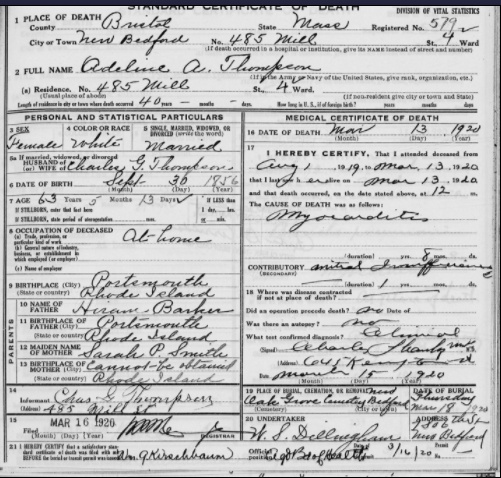 STANDARD CERTIFICATE OF DEATH
1 PLACE OF DEATH DIVISION OF VITAL STATISTICS
County Bristol State Mass Registered No. 579
City or Town New Bedford No. 485 Mill St., 4 Ward
(If death occurred in a hospital or institution, give its NAME instead of street and number)
2 FULL NAME Adeline A. Thompson
(If in the Army or Navy of the United States, give rank, organization, etc.)
(a) Residence. No. 485 Mill St., 4 Ward
(Usual place of abode) (If non-resident give city or town and State)
Length of residence in city or town where death occurred 40 years - months - days. How long in U. S., if of foreign birth? years months days
PERSONAL AND STATISTICAL PARTICULARS
3 SEX 4 COLOR OR RACE 5 SINGLE, MARRIED, WIDOWED, OR DIVORCED (write the word)
Female White Married
5a If married, widowed, or divorced
HUSBAND of
(or) WIFE of Charles G. Thompson
6 DATE OF BIRTH Sept 30 1856
(Month) (Day) (Year)
7 AGE 63 Years 5 Months 13 Days If LESS than
1 day, hrs.
or min.
If STILLBORN, enter that fact here
If STILLBORN, state period of uterogestation mos.
8 OCCUPATION OF DECEASED
(a) Trade, profession, or
particular kind of work At home
(b) General nature of industry,
business, or establishment in
which employed (or employer)
(c) Name of employer
9 BIRTHPLACE (City) Portsmouth
(State or country) Rhode Island
PARENTS
10 NAME OF
FATHER Hiram Barker
11 BIRTHPLACE OF
FATHER (City) Portsmouth
(State or country) Rhode Island
12 MAIDEN NAME
OF MOTHER Sarah P. Smith
13 BIRTHPLACE OF
MOTHER (City) Cannot be obtained
(State or country) Rhode Island
14
Informant Chas G. Thompson
(Address) 485 Mill St
15
Filed MAR 16 1920
(Month) (Day) (Year) REGISTRAR
21 I HEREBY CERTIFY that a satisfactory standard certificate of death was filed with me
BEFORE the burial or transit permit was issued: Wm. G Kirschbaum
MEDICAL CERTIFICATE OF DEATH
16 DATE OF DEATH Mar 13 1920
(Month) (Day) (Year)
17
I HEREBY CERTIFY, That I attended deceased
from Aug 1, 1919, to Mar 13, 1920
that I last saw alive on Mar 13, 1920
and that death occurred, on the date stated above, at 12 m.
The CAUSE OF DEATH was as follows:
Myocarditis
(duration) yrs. 8 mos. ds.
CONTRIBUTORY Mitral
(SECONDARY)
(duration) 1 yrs. mos. ds.
18 Where was disease contracted
if not at place of death?
Did an operation precede death? no Date of
Was there an autopsy? no
What test confirmed diagnosis? Clinical
(Signed) Charles M.D.
(Address)
March 15, 1920
19 PLACE OF BURIAL, CREMATION, OR REMOVAL DATE OF BURIAL
Oak Grove Cemetery New Bedford Thursday
(Cemetery) (City or town) Mar 18 1920
20 UNDERTAKER ADDRESS
W. S. Dillingham New Bedford
Official position Agt Bd of Health 3/16/20